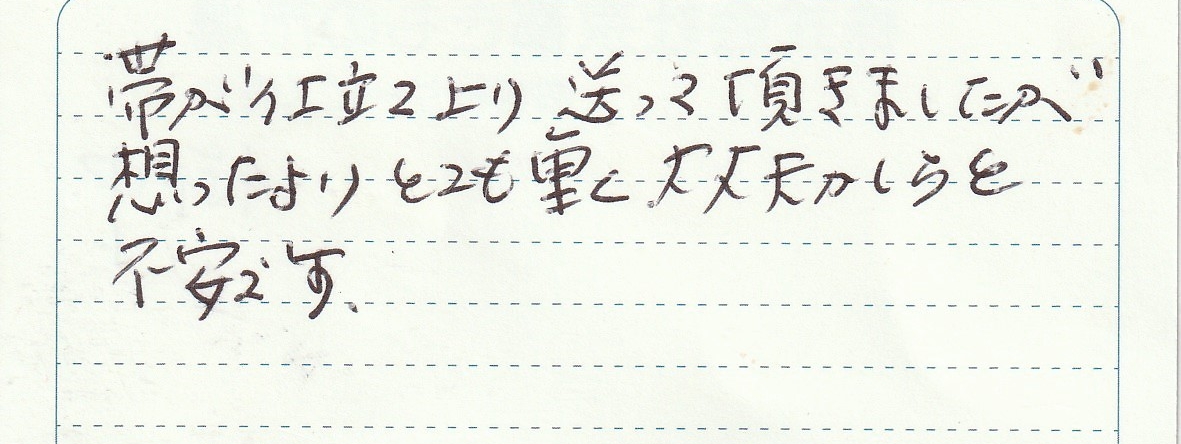 帯が仕立て上り送って頂きましたが
想ったよりとても重く大丈夫かしらと
不安です。